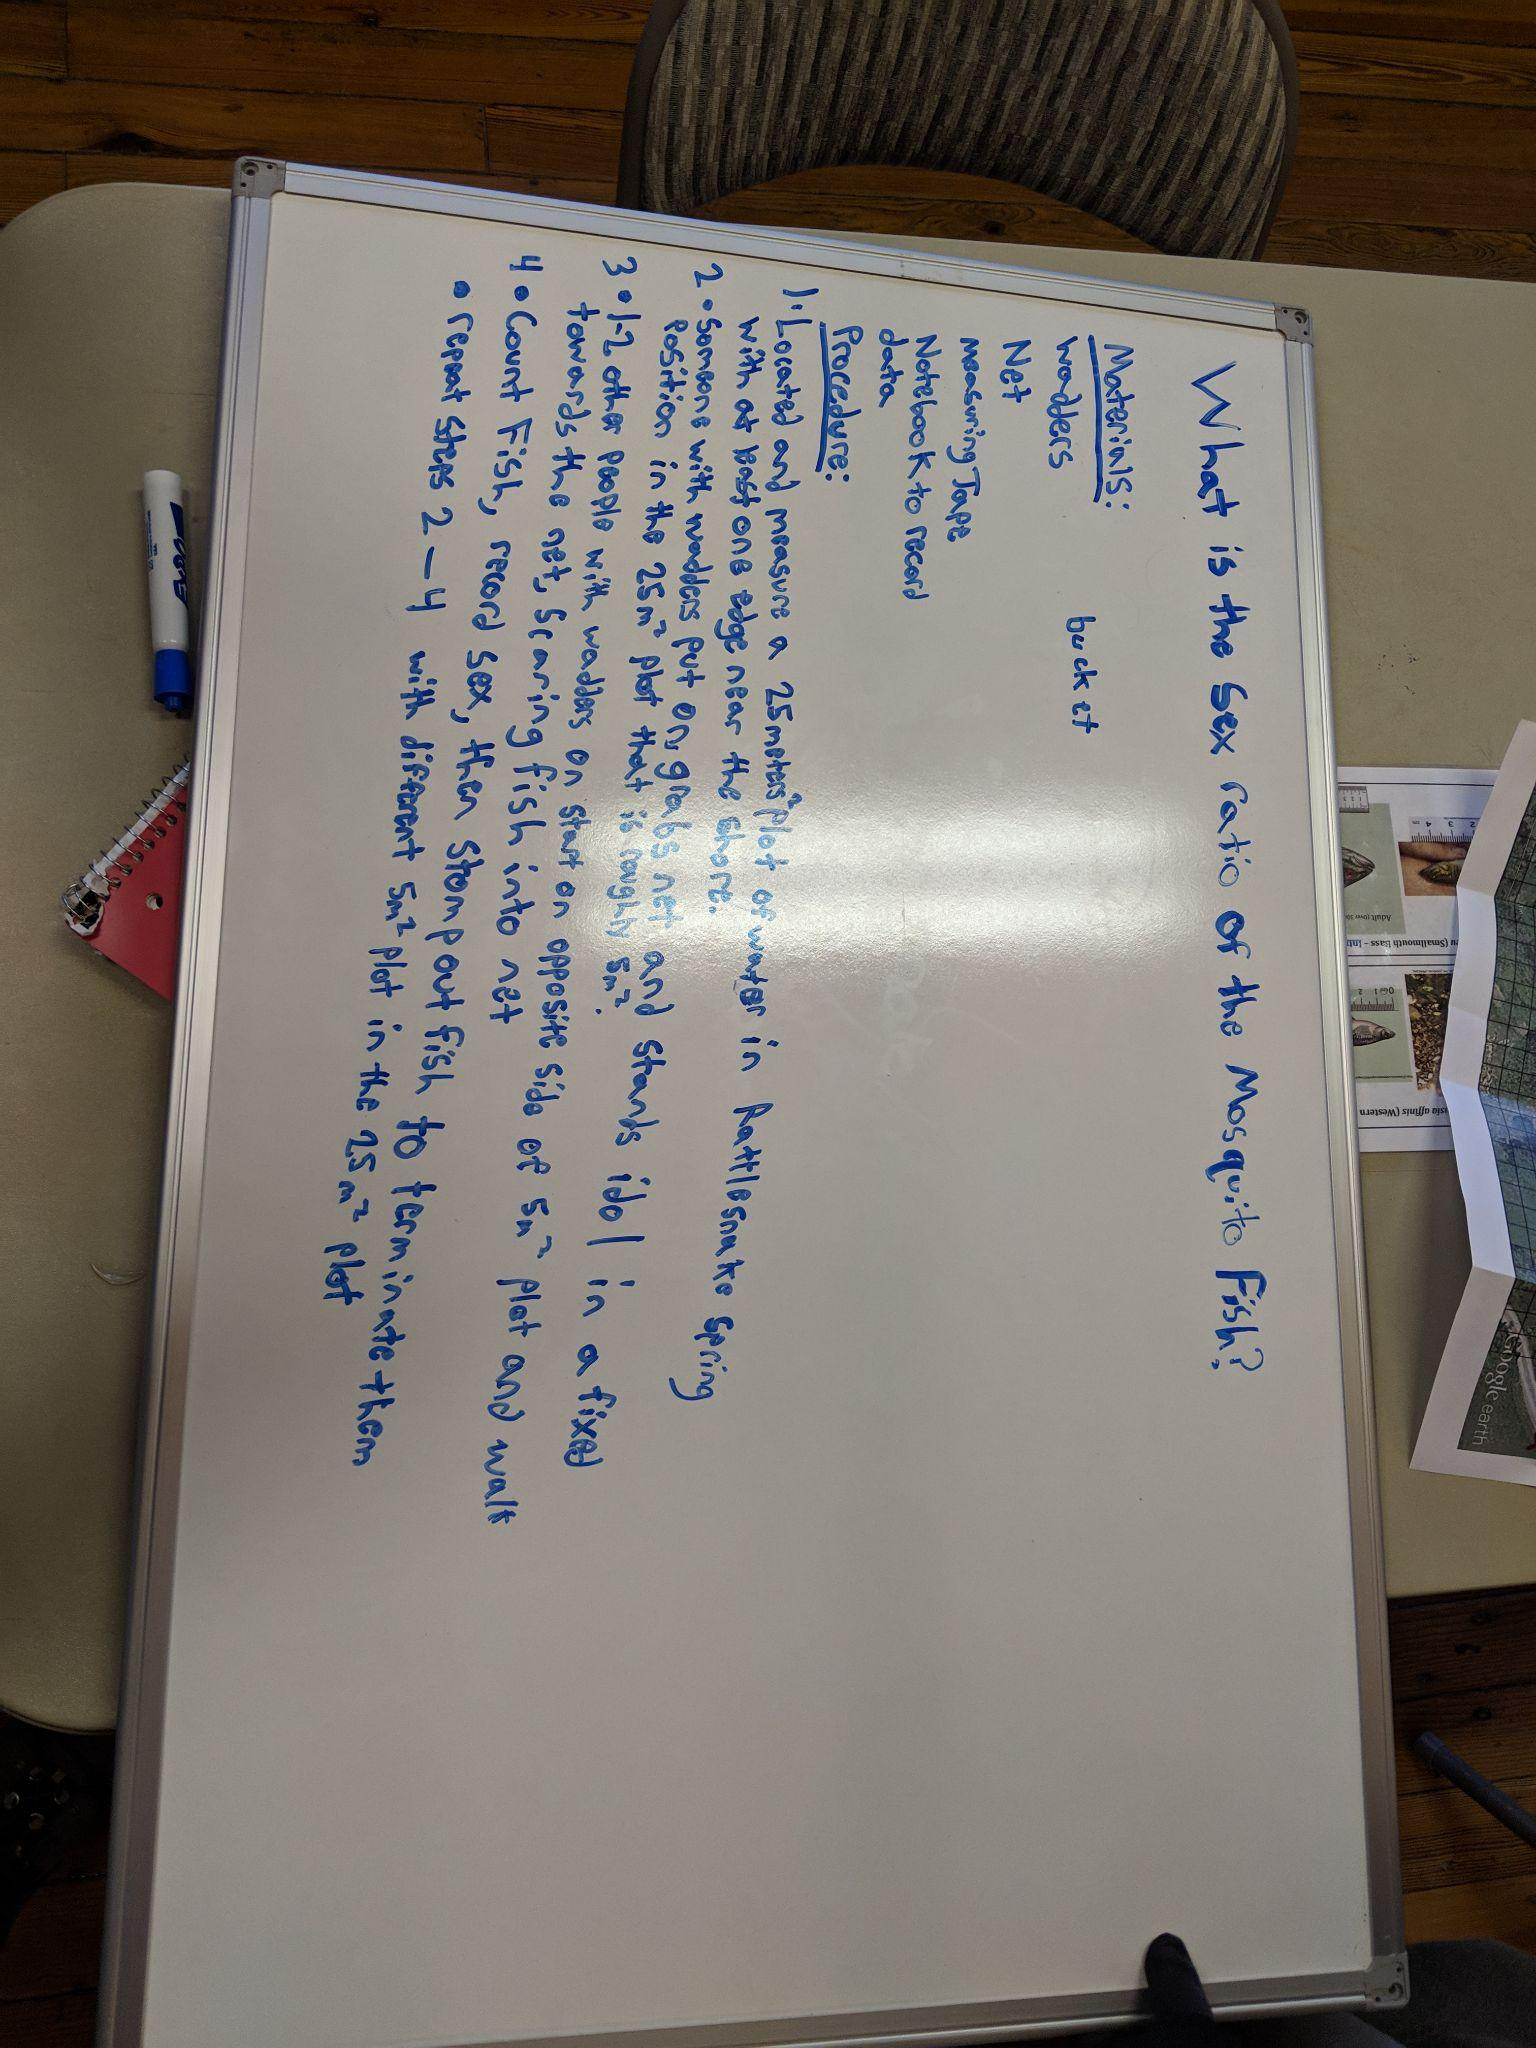 What is the Sex ratio of the Mosquito Fish?
Materials:
wadders
bucket
Net
measuring Tape
Notebook to record
data
Procedure:
1. Located and measure a 25 meters² plot of water in Rattlesnake Spring
with at least one edge near the shore.
2. Someone with wadders put on, grabs net and stands idol in a fixed
Position in the 25m² plot that is roughly 5m².
3. 1-2 other people with wadders on start on opposite side of 5m² plot and walk
towards the net, scaring fish into net
4. Count Fish, record sex, then stomp out fish to terminate them
• repeat steps 2-4 with different 5m² plot in the 25m² plot
Adult (over 30
u (Smallmouth Bass - Int
sia affinis (Western
Google earth